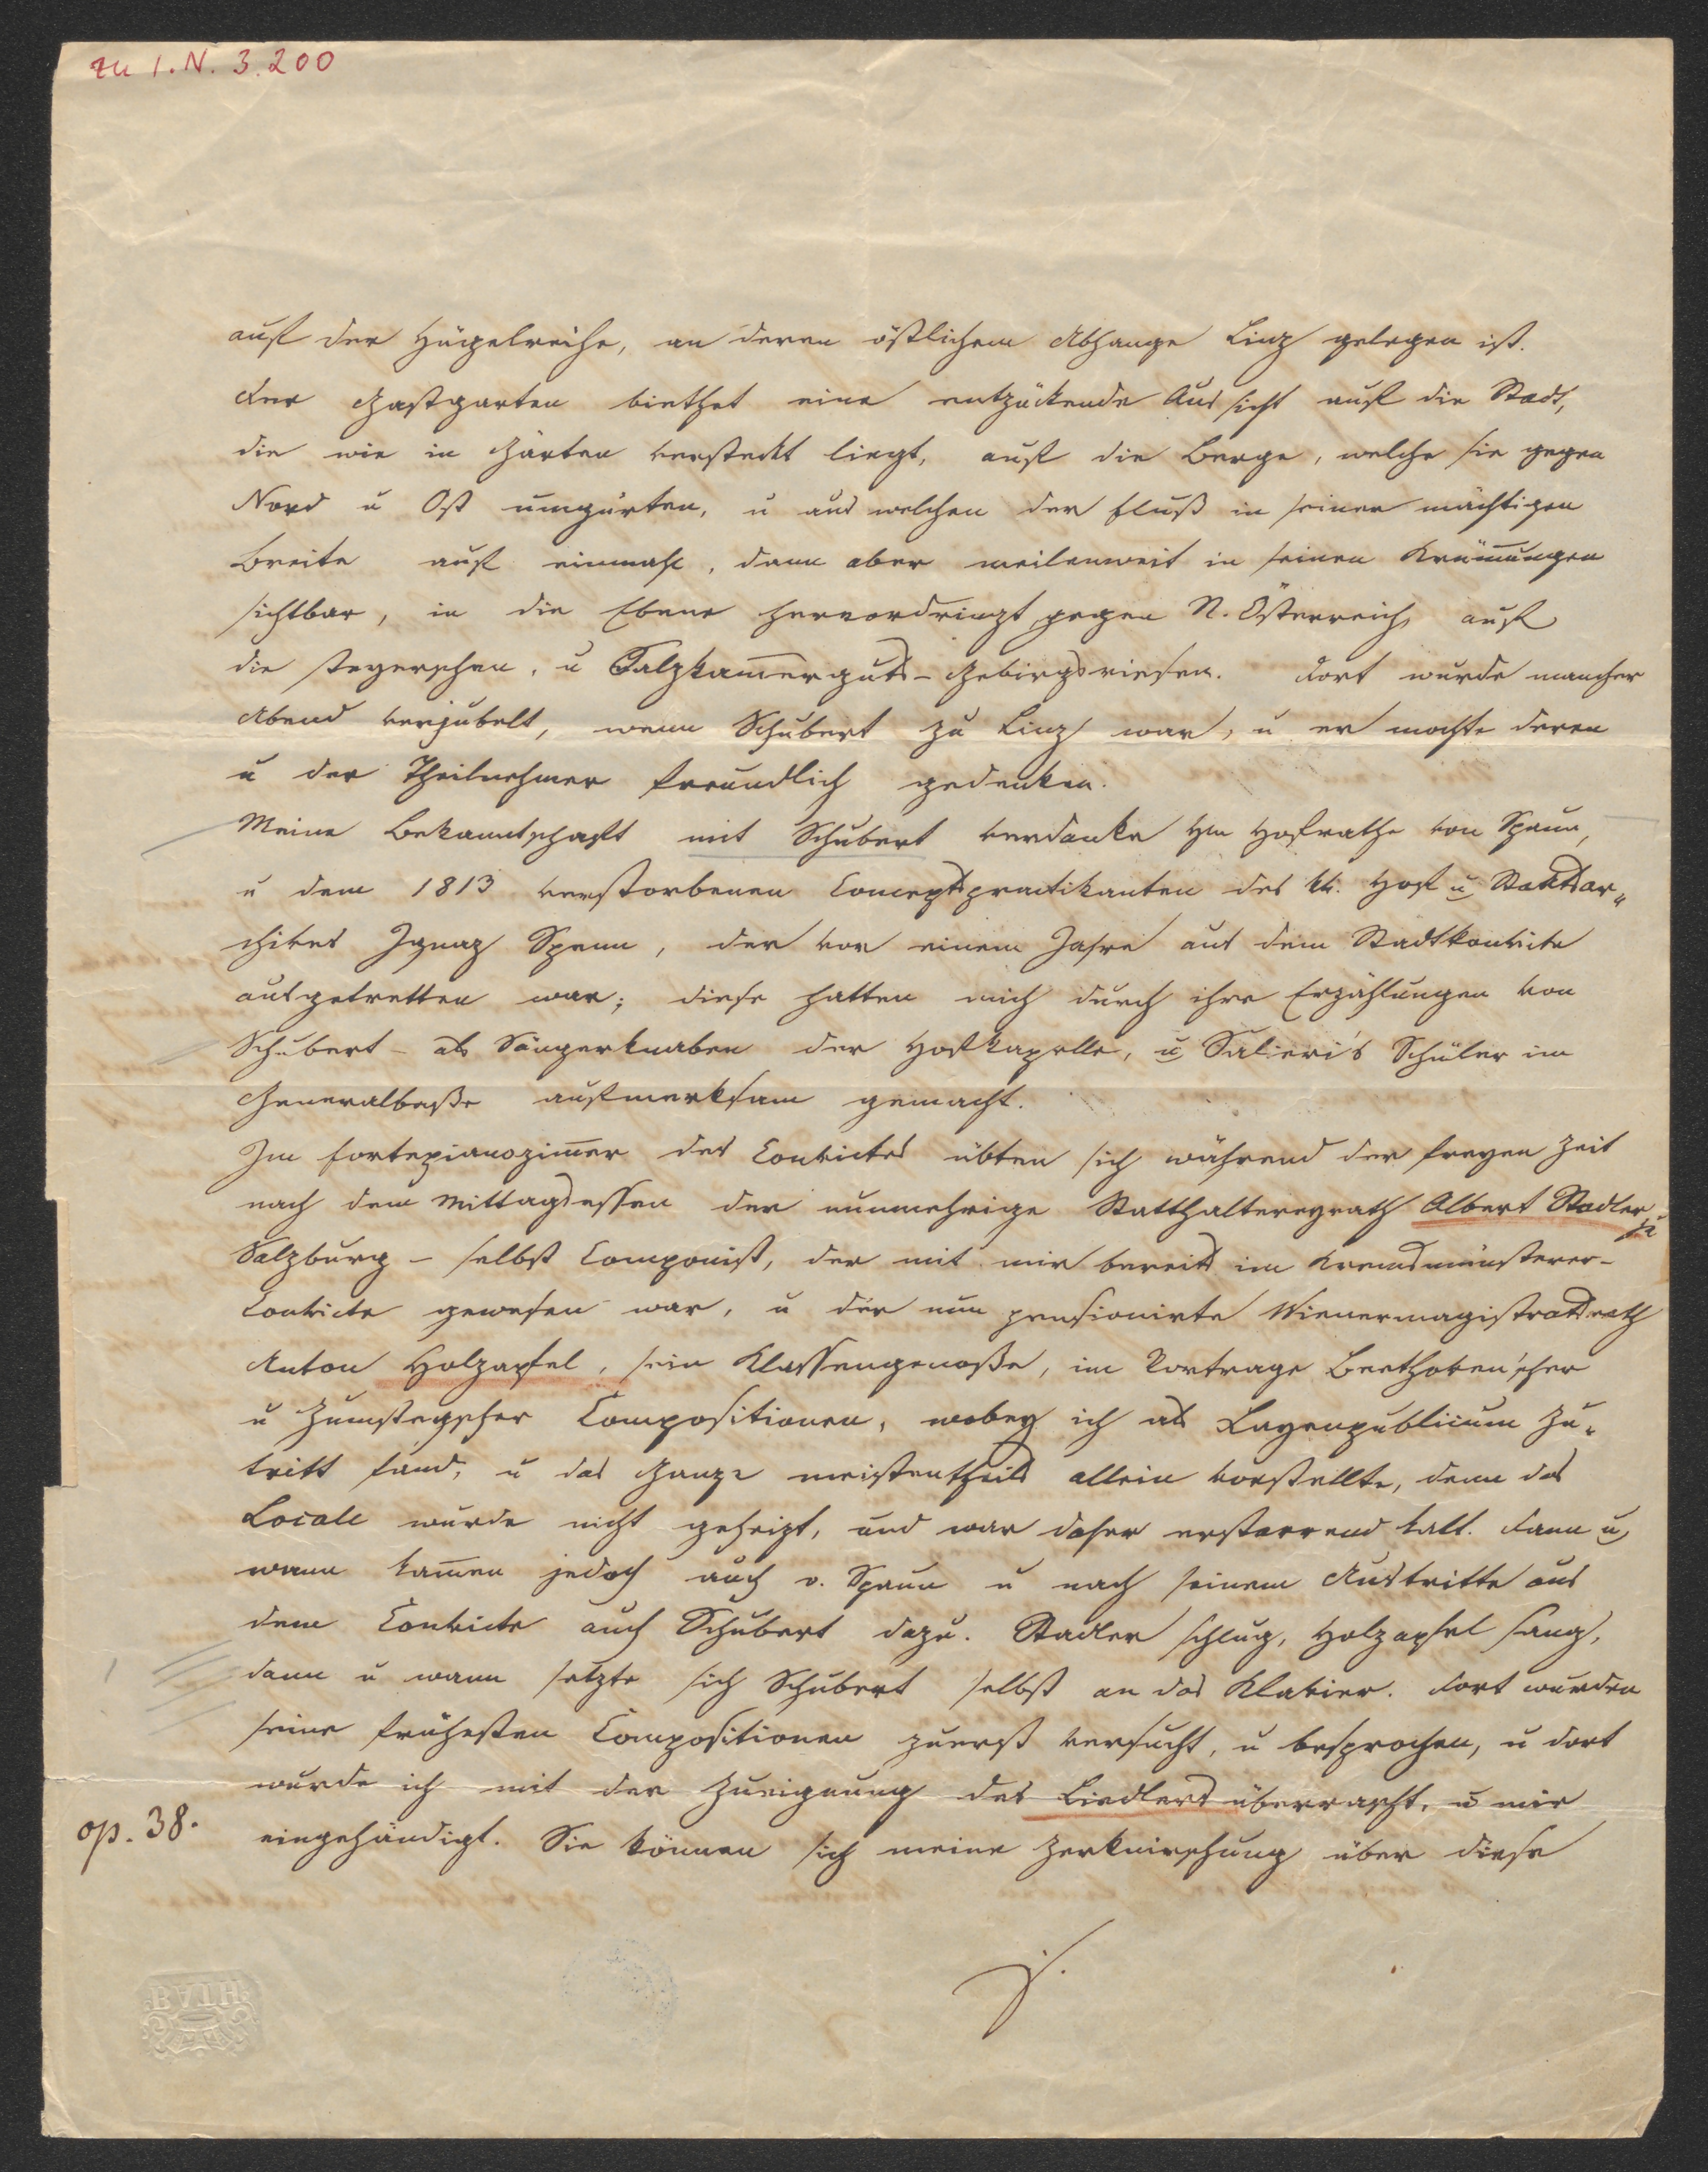 zu I.N. 3.200
auf der Hügelreihe, an deren östlichem Abhange Linz gelegen ist.
Der Gastgarten biethet eine entzückende Aussicht auf die Stadt,
die wie in Gärten versteckt liegt, auf die Berge, welche sie gegen
Nord u Ost umgürten, u aus welchen der Fluß in seiner mächtigen
Breite auf einmahl, dann aber meilenweit in seinen Krüm̅ungen
sichtbar, in die Ebene hervordringt gegen N. Österreich, auf
die steyerschen, u Salzkam̅erguts-Gebirgsriesen. Dort wurde mancher
Abend verjubelt, wenn Schubert zu Linz war, u er mochte deren
u der Theilnehmer freundlich gedenken.
Meine Bekanntschaft mit Schubert verdanke Hm Hofrathe von Spaun,
u dem 1813 verstorbenen Conceptspractikanten des kk. Hof u Staatsar„
chives Ignaz Spenn, der vor einem Jahre aus dem Stadtkonvicte
ausgetretten war; diese hatten mich durch ihre Erzählungen von
Schubert – als Sängerknaben der Hofkapelle, u Salieri's Schüler im
Generalbaße aufmerksam gemacht.
Im Fortepianozim̅er des Convictes übten sich während der freyen Zeit
nach dem Mittagsessen der nunmehrige Statthaltereyrath Albert Stadler zu
Salzburg – selbst Componist, der mit mir bereits im Kremsmünsterer-
Convicte gewesen war, u der nun pensionirte Wienermagistratsrath
Anton Holzapfel, sein Klassengenoße, im Vortrage Beethoven'scher
u Zumsteegscher Compositionen, wobey ich als Layenpublicum Zu„
tritt fand, u das Ganze meistentheils allein vorstellte, denn das
Locale wurde nicht geheizt, und war daher erstarrend kalt. Dann u
wann kam̅en jedoch auch v. Spaun u nach seinem Austritte aus
dem Convicte auch Schubert dazu. Stadler schlug, Holzapfel sang,
dann u wann setzte sich Schubert selbst an das Klavier. Dort wurden
seine frühesten Compositionen zuerst versucht, u besprochen, u dort
wurde ich mit der Zueignung des Liedlers überrascht, u mir
op. 38.
eingehändigt. Sie können sich meine Zerknirschung über diese
BATH